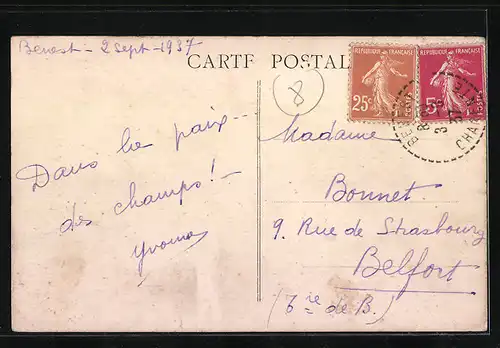 Benest - 2 Sept - 1937
CARTE POSTALE
8
REPUBLIQUE FRANÇAISE
25c
REPUBLIQUE FRANÇAISE
5c
BENEST
CHA
Dans la paix ---
des champs! -
Yvonne
Madame
Bonnet
9. Rue de Strasbourg
Belfort
(Tire de B.)